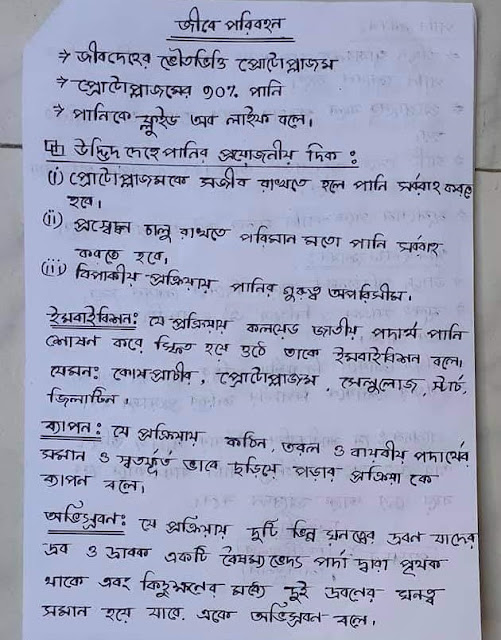 জীবে পরিবহন
→ জীবদেহের ভৌতভিত্তি প্রোটোপ্লাজম
→ প্রোটোপ্লাজমের ৯০% পানি
→ পানিকে ফ্লুইড অব লাইফ বলে।
উদ্ভিদ দেহে পানির প্রয়োজনীয় দিক :
(i) প্রোটোপ্লাজমকে সজীব রাখতে হলে পানি সরবরাহ করতে
হবে।
(ii) প্রস্বেদন চালু রাখতে পরিমান মতো পানি সরবরাহ
করতে হবে।
(iii) বিপাকীয় প্রক্রিয়ায় পানির গুরুত্ব অপরিসীম।
ইমবাইবিশন: যে প্রক্রিয়ায় কলয়েড জাতীয় পদার্থ পানি
শোষন করে স্ফিত হয়ে ওঠে তাকে ইমবাইবিশন বলে।
যেমন: কোষপ্রাচীর, প্রোটোপ্লাজম, সেলুলোজ, স্টার্চ,
জিলাটিন।
ব্যাপন: যে প্রক্রিয়ায় কঠিন, তরল ও বায়বীয় পদার্থের
সমান ও স্বতস্ফূর্ত ভাবে ছড়িয়ে পড়ার প্রক্রিয়া কে
ব্যাপন বলে।
অভিস্রবন: যে প্রক্রিয়ায় দুটি ভিন্ন ঘনত্বের দ্রবন যাদের
দ্রব ও দ্রাবক একটি বৈষম্যভেদ্য পর্দা দ্বারা পৃথক
থাকে এবং কিছুক্ষনের মধ্যে দুই দ্রবনের ঘনত্ব
সমান হয়ে যাবে. একে অভিস্রবন বলে।